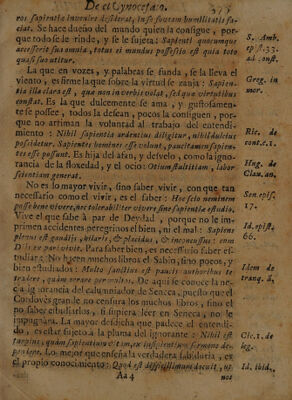 De el Cynocefalo.
ros sapientiæ invenire desiderat, in se suscam humilitatis fa-
ciat. Se hace dueño del mundo quien la consigue, por-
que todo se le rinde, y se le sujeta: Sapienti quocumque
accesserit sua omnia, totus ei mundus possessio est quia toto
quasi suo utitur.
S. Amb.
epist. 33.
ad const.
La que en vozes, y palabras se funda, se la lleva el
viento, es firme la que sobre la virtud se zanja: Sapien-
tia illa clara est, qua non in verbis volat, sed quæ virtutibus
constat. Es la que dulcemente se ama, y gustosamen-
te se possee, todos la desean, pocos la consiguen, por-
que no arriman la voluntad al trabajo del entendi-
miento: Nihil sapientia ardentius diligitur, nihil dulcius
possidetur. Sapientes homines esse volunt, pauci tamen sapien-
tes esse possunt. Es hija del afan, y desvelo, como la igno-
rancia de la floxedad, y el ocio: Otium stultitiam, labor
scientiam generat.
Greg. in
mor.
Ric. de
cont. c. 1.
Hug. de
Clau. an.
No es lo mayor vivir, sino saber vivir, con que tan
necessario como el vivir, es el saber: Hoc solo neminem
posse bene vivere, nec tolerabiliter vivere sine sapientiæ studio.
Vive el que sabe à par de Deydad, porque no le im-
primen accidentes peregrinos el bien, ni el mal: Sapiens
plenus est gaudio, hilaris, & placidus, & inconcussus: cum
Diis ex pari vivit. Para saber bien, es necessario saber es-
tudiar: No lueen muchos libros el Sabio, sino pocos, y
bien estudiados: Multo satius est paucis authoribus te
tradere, quam errare per multos. De aqui se conoce la ne-
cia ignorancia del calumniador de Seneca, puesto que el
Cordovès grande no censura los muchos libros, sino el
no saber estudiarlos, si supiera leer en Seneca, no le
impugnàra. La mayor desdicha que padece el entendi-
do, es estar sujeto à la pluma del ignorante: Nihil est
turpius, quàm sapientium vitam, ex insipientium sermone de-
pendere. Lo mejor que enseña la verdadera sabiduria, es
el propio conocimiento: Quod est difficillimum docuit, ut
Sen. epist.
17.
Id. epist.
66.
Idem de
tranq. à.
Cic. 1. de
leg.
Id. ibid.
Aa 4
nos